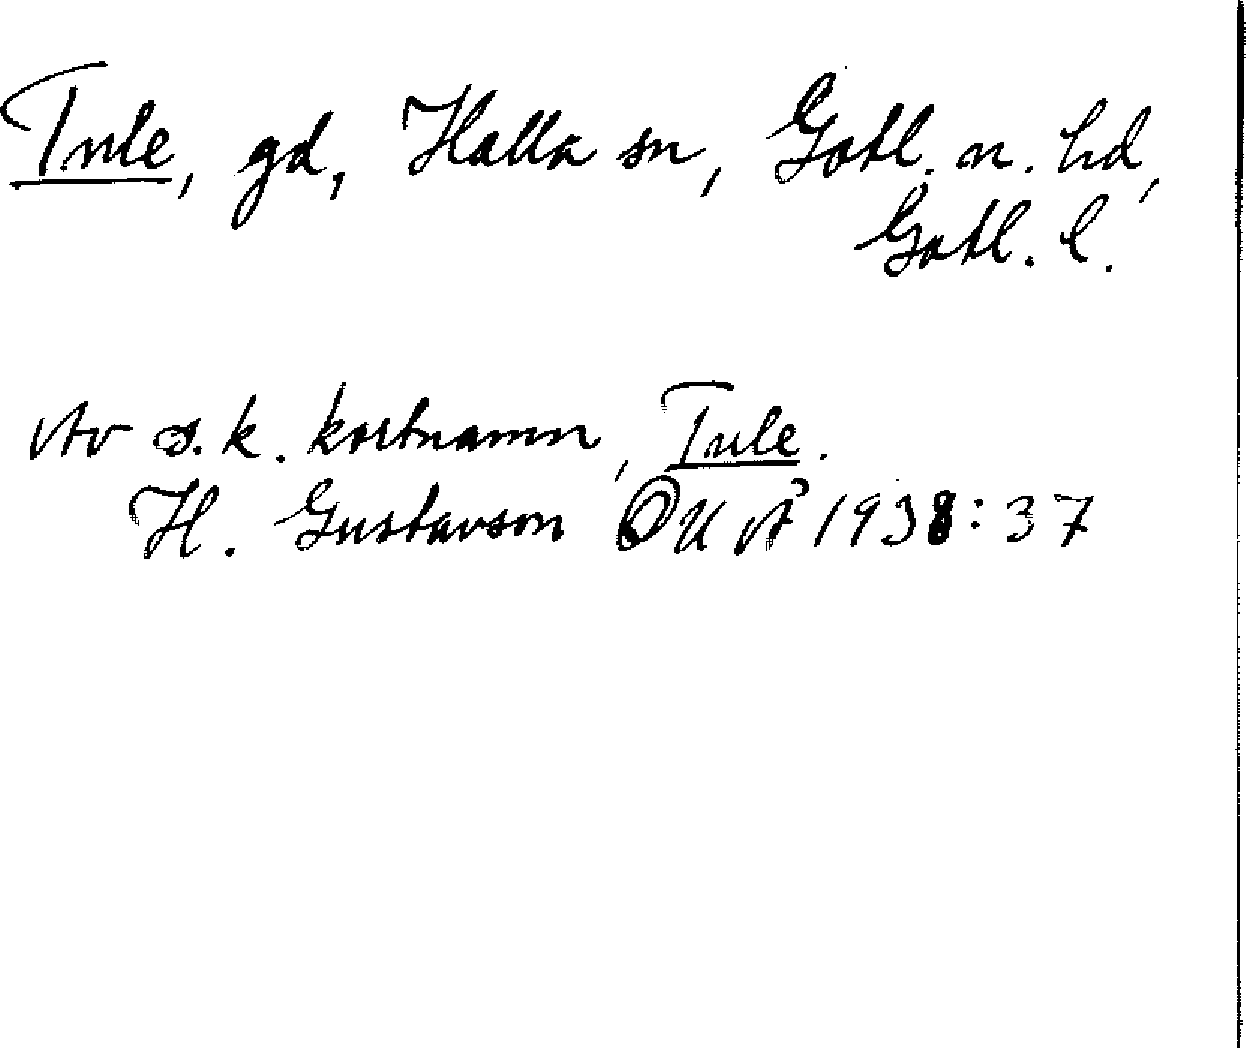 Tule, gd, Halla sn, Gotl. n. hd,
Gotl. l.
Av s.k. kortnamn, Tule.
H. Gustavson OUÅ 1938:37